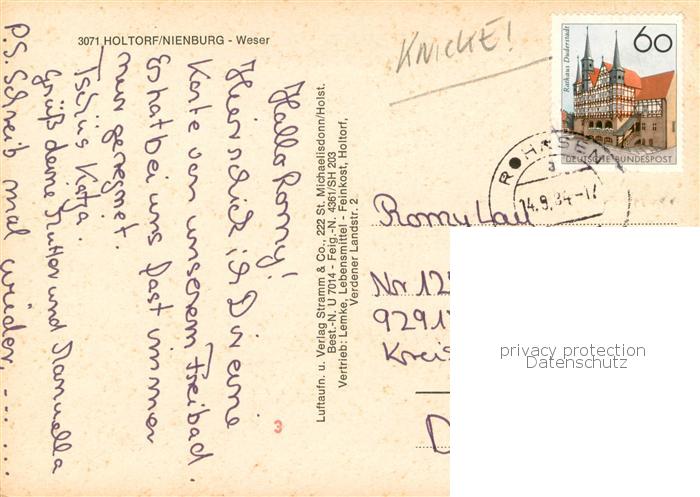 3071 HOLTORF/NIENBURG - Weser
KNICKE!
60
Rathaus Duderstadt
DEUTSCHE BUNDESPOST
14.9.84-17
Hallo Romy!
Hier schick ich Dir eine
Karte von unserem Freibad.
Es hat bei uns fast immer
nur geregnet.
Tschüs Katja.
Grüß deine Mutter und Manuella
P.S. Schreib mal wieder, - - - - -
Luftaufn. u. Verlag Stramm & Co., 222 St. Michaelisdonn/Holst.
Best.-N. U 7014 - Feig.-N. 4361/SH 203
Vertrieb: Lemke, Lebensmittel - Feinkost, Holtorf,
Verdener Landstr. 2
3
Romy Lau
Nr 12
9291
Kreis
D
privacy protection
Datenschutz